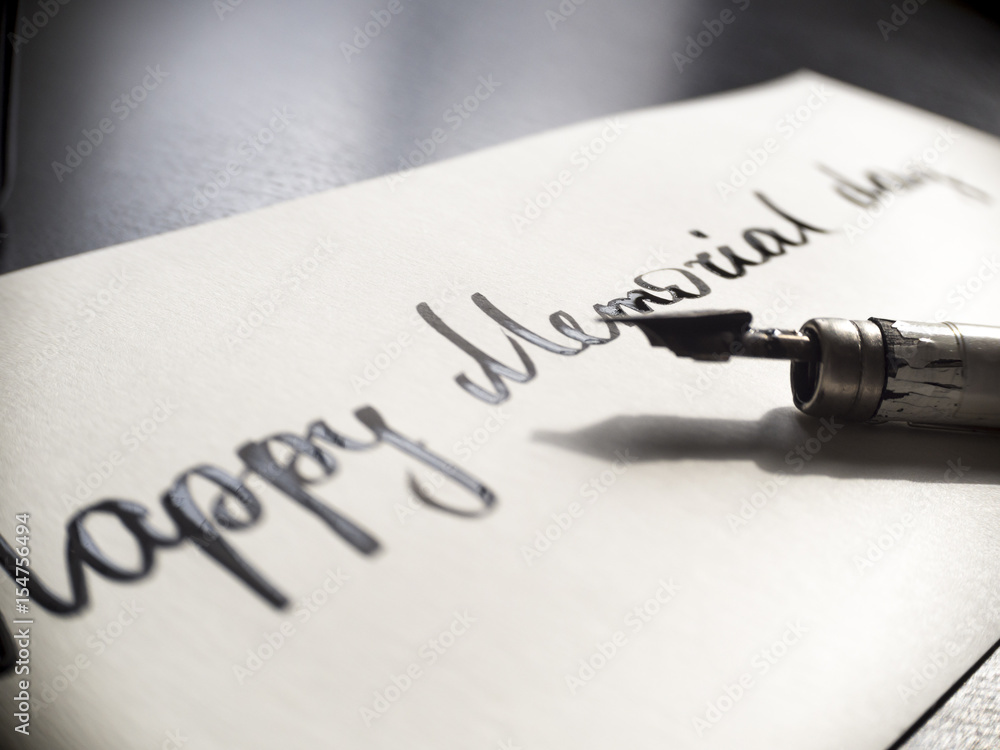 Happy Memorial day
Adobe Stock | #154756494